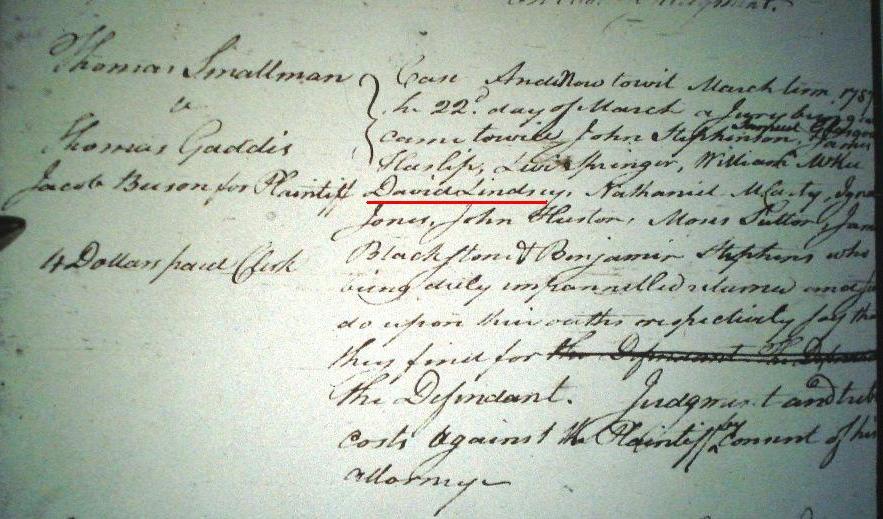 Judgment.
Thomas Smallman
v
Thomas Gaddis
Jacob Beeson for Plaintiff
4 Dollars paid Clerk
Case And Now towit March term 1787
he 22d day of March a Jury being
came towit John Stephenson, Samuel James
Haslip, Levi Springer, William McKee
David Lindsey, Nathaniel McCarty,
Jones, John Huston, Moses Sutton, Jam
Blackstone & Benjamin Stephens who
being duly impannelled returned and
do upon their oaths respectively say tha
they find for the Defendant The Defend
the Defendant. Judgment and treb
costs against the Plaintiff by Consent of his
attorney